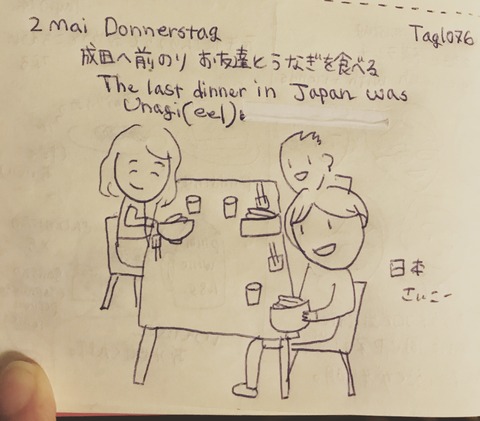 2 Mai Donnerstag
Tag1076
成田へ前のり お友達とうなぎを食べる
The last dinner in Japan was
Unagi(eel).
日本
さいこー